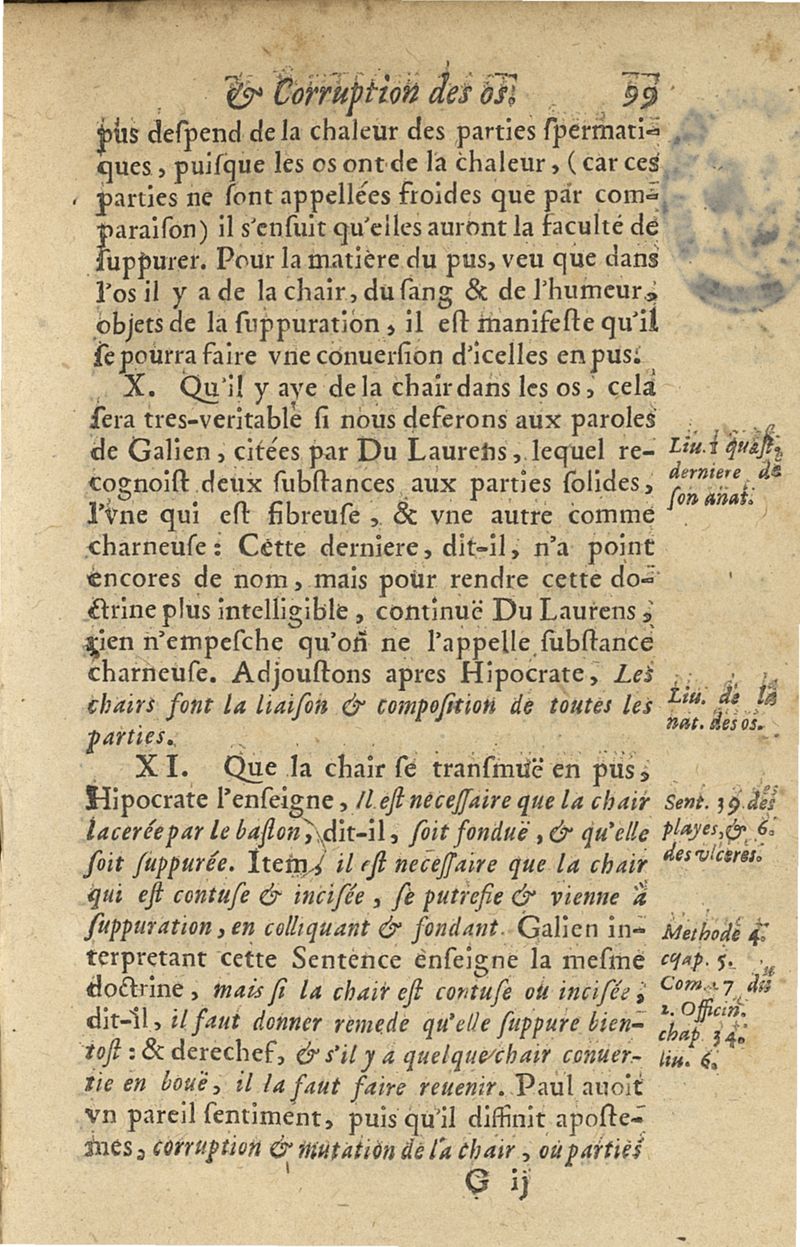 & Corruption des os. 99
pus deſpend de la chaleur des parties ſpermati-
ques, puiſque les os ont de la chaleur, (car ces
parties ne ſont appellées froides que par com-
paraiſon) il s'enſuit qu'elles auront la faculté de
ſuppurer. Pour la matière du pus, veu que dans
l'os il y a de la chair, du ſang & de l'humeur,
objets de la ſuppuration, il eſt manifeſte qu'il
ſe pourra faire vne conuerſion d'icelles en pus.
X. Qu'il y aye de la chair dans les os, cela
ſera tres-veritable ſi nous deferons aux paroles
de Galien, citées par Du Laurens, lequel re-
cognoiſt deux ſubſtances aux parties ſolides,
l'vne qui eſt fibreuſe, & vne autre comme
charneuſe: Cette derniere, dit-il, n'a point
encores de nom, mais pour rendre cette do-
ctrine plus intelligible, continuë Du Laurens,
rien n'empeſche qu'on ne l'appelle ſubſtance
charneuſe. Adjouſtons apres Hipocrate, Les
chairs font la liaiſon & compoſition de toutes les
parties.
XI. Que la chair ſe tranſmuë en pus,
Hipocrate l'enſeigne, Il eſt neceſſaire que la chair
lacerée par le baſton, dit-il, ſoit fonduë, & qu'elle
ſoit ſuppurée. Item, il eſt neceſſaire que la chair
qui eſt contuſe & inciſée, ſe putrefie & vienne à
ſuppuration, en colliquant & fondant. Galien in-
terpretant cette Sentence enſeigne la meſme
doctrine, mais ſi la chair eſt contuſe ou inciſée,
dit-il, il faut donner remede qu'elle ſuppure bien-
toſt: & derechef, & s'il y a quelque chair conuer-
tie en bouë, il la faut faire reuenir. Paul auoit
vn pareil ſentiment, puis qu'il diffinit apoſte-
mes, corruption & mutation de la chair, ou parties
G ij
Liu. 1 queſt.
derniere de
ſon anat.
Liu. de la
nat. des os.
Sent. 39. des
playes, & 6.
des vlceres.
Methode 4.
cap. 5.
Com. 17 du
2. Officin.
chap. 34.
liu. 6.